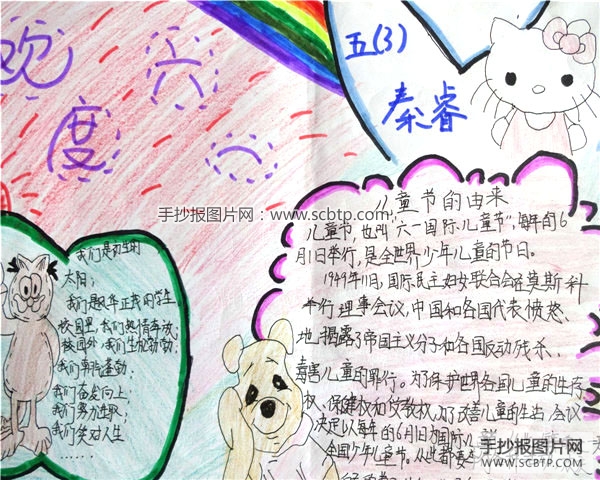 欢
度
六
一
五(3)
秦睿
手抄报图片网:www.scbtp.com
儿童节的由来
儿童节,也叫“六一国际儿童节”,每年的6
月1日举行,是全世界少年儿童的节日。
1949年11月,国际民主妇女联合会在莫斯科
举行理事会议,中国和各国代表愤怒
地揭露了帝国主义分子和各国反动残杀、
毒害儿童的罪行。为了保护世界各国儿童的生存
权、保健权和受教权,为了改善儿童的生活,会议
决定以每年的6月1日为国际儿
全国少年儿童节。从此都要
我们是初生的
太阳;
我们是风华正茂的学生。
校园里,我们热情奔放;
校园外,我们生机勃勃;
我们
我们奋发向上;
我们努力进取;
我们笑对人生
……
手抄报图片网
WWW.SCBTP.COM